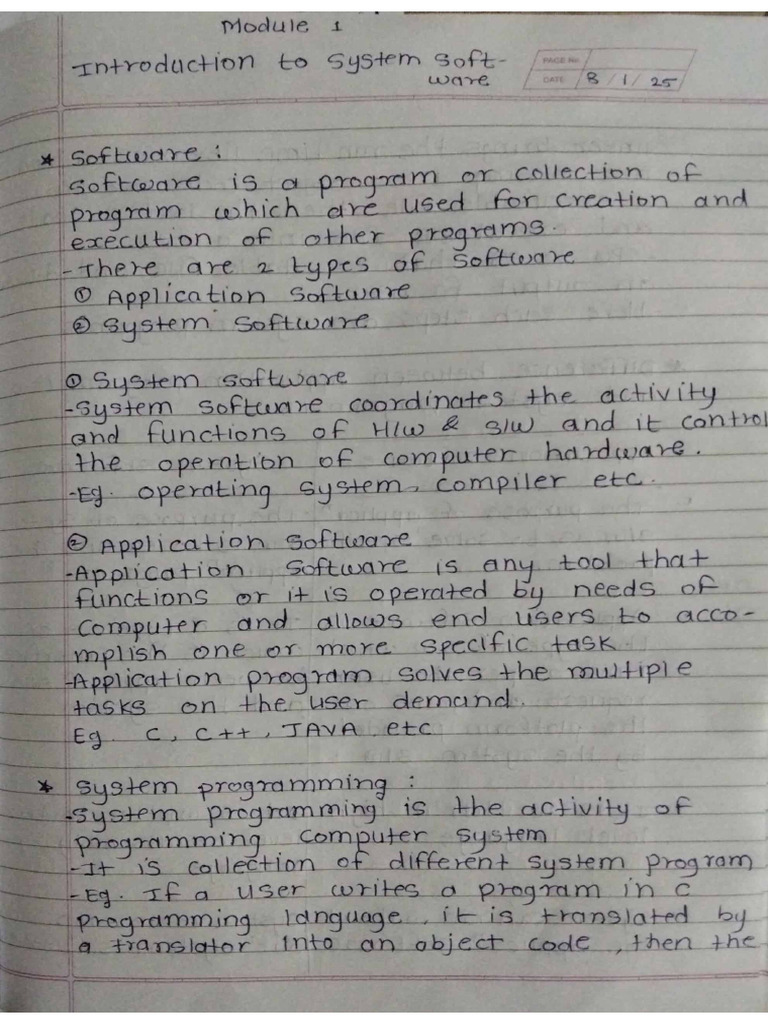 Module 1
Introduction to System Soft-
ware
PAGE No.
DATE 8/1/25
* Software :
Software is a program or collection of
program which are used for creation and
execution of other programs.
- There are 2 types of Software
① Application Software
② System Software
① System software
- System software coordinates the activity
and functions of H/w & S/w and it control
the operation of computer hardware.
- Eg. operating system, compiler etc.
② Application Software
- Application Software is any tool that
functions or it is operated by needs of
computer and allows end users to acco-
mplish one or more specific task.
- Application program solves the multiple
tasks on the user demand.
Eg. C, C++, JAVA etc
* System programming :
- System programming is the activity of
programming computer system
- It is collection of different system program
- Eg. If a user writes a program in C
programming language, it is translated by
a translator into an object code, then the